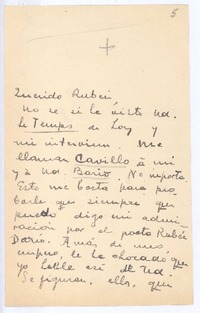 5
Querido Rubén
no se si le visto Ud.
Le Temps de Loy y
mi interview. Me
llaman Cavillo á mi
y á Ud. Bario. No importa
Esto me basta para pro
barle que siempre que
puedo digo mi admi
ración por el poeta Rubén
Darío. A más de uno
le ha chocado que
yo hable así de Ud.
Se figuran, ellos, que